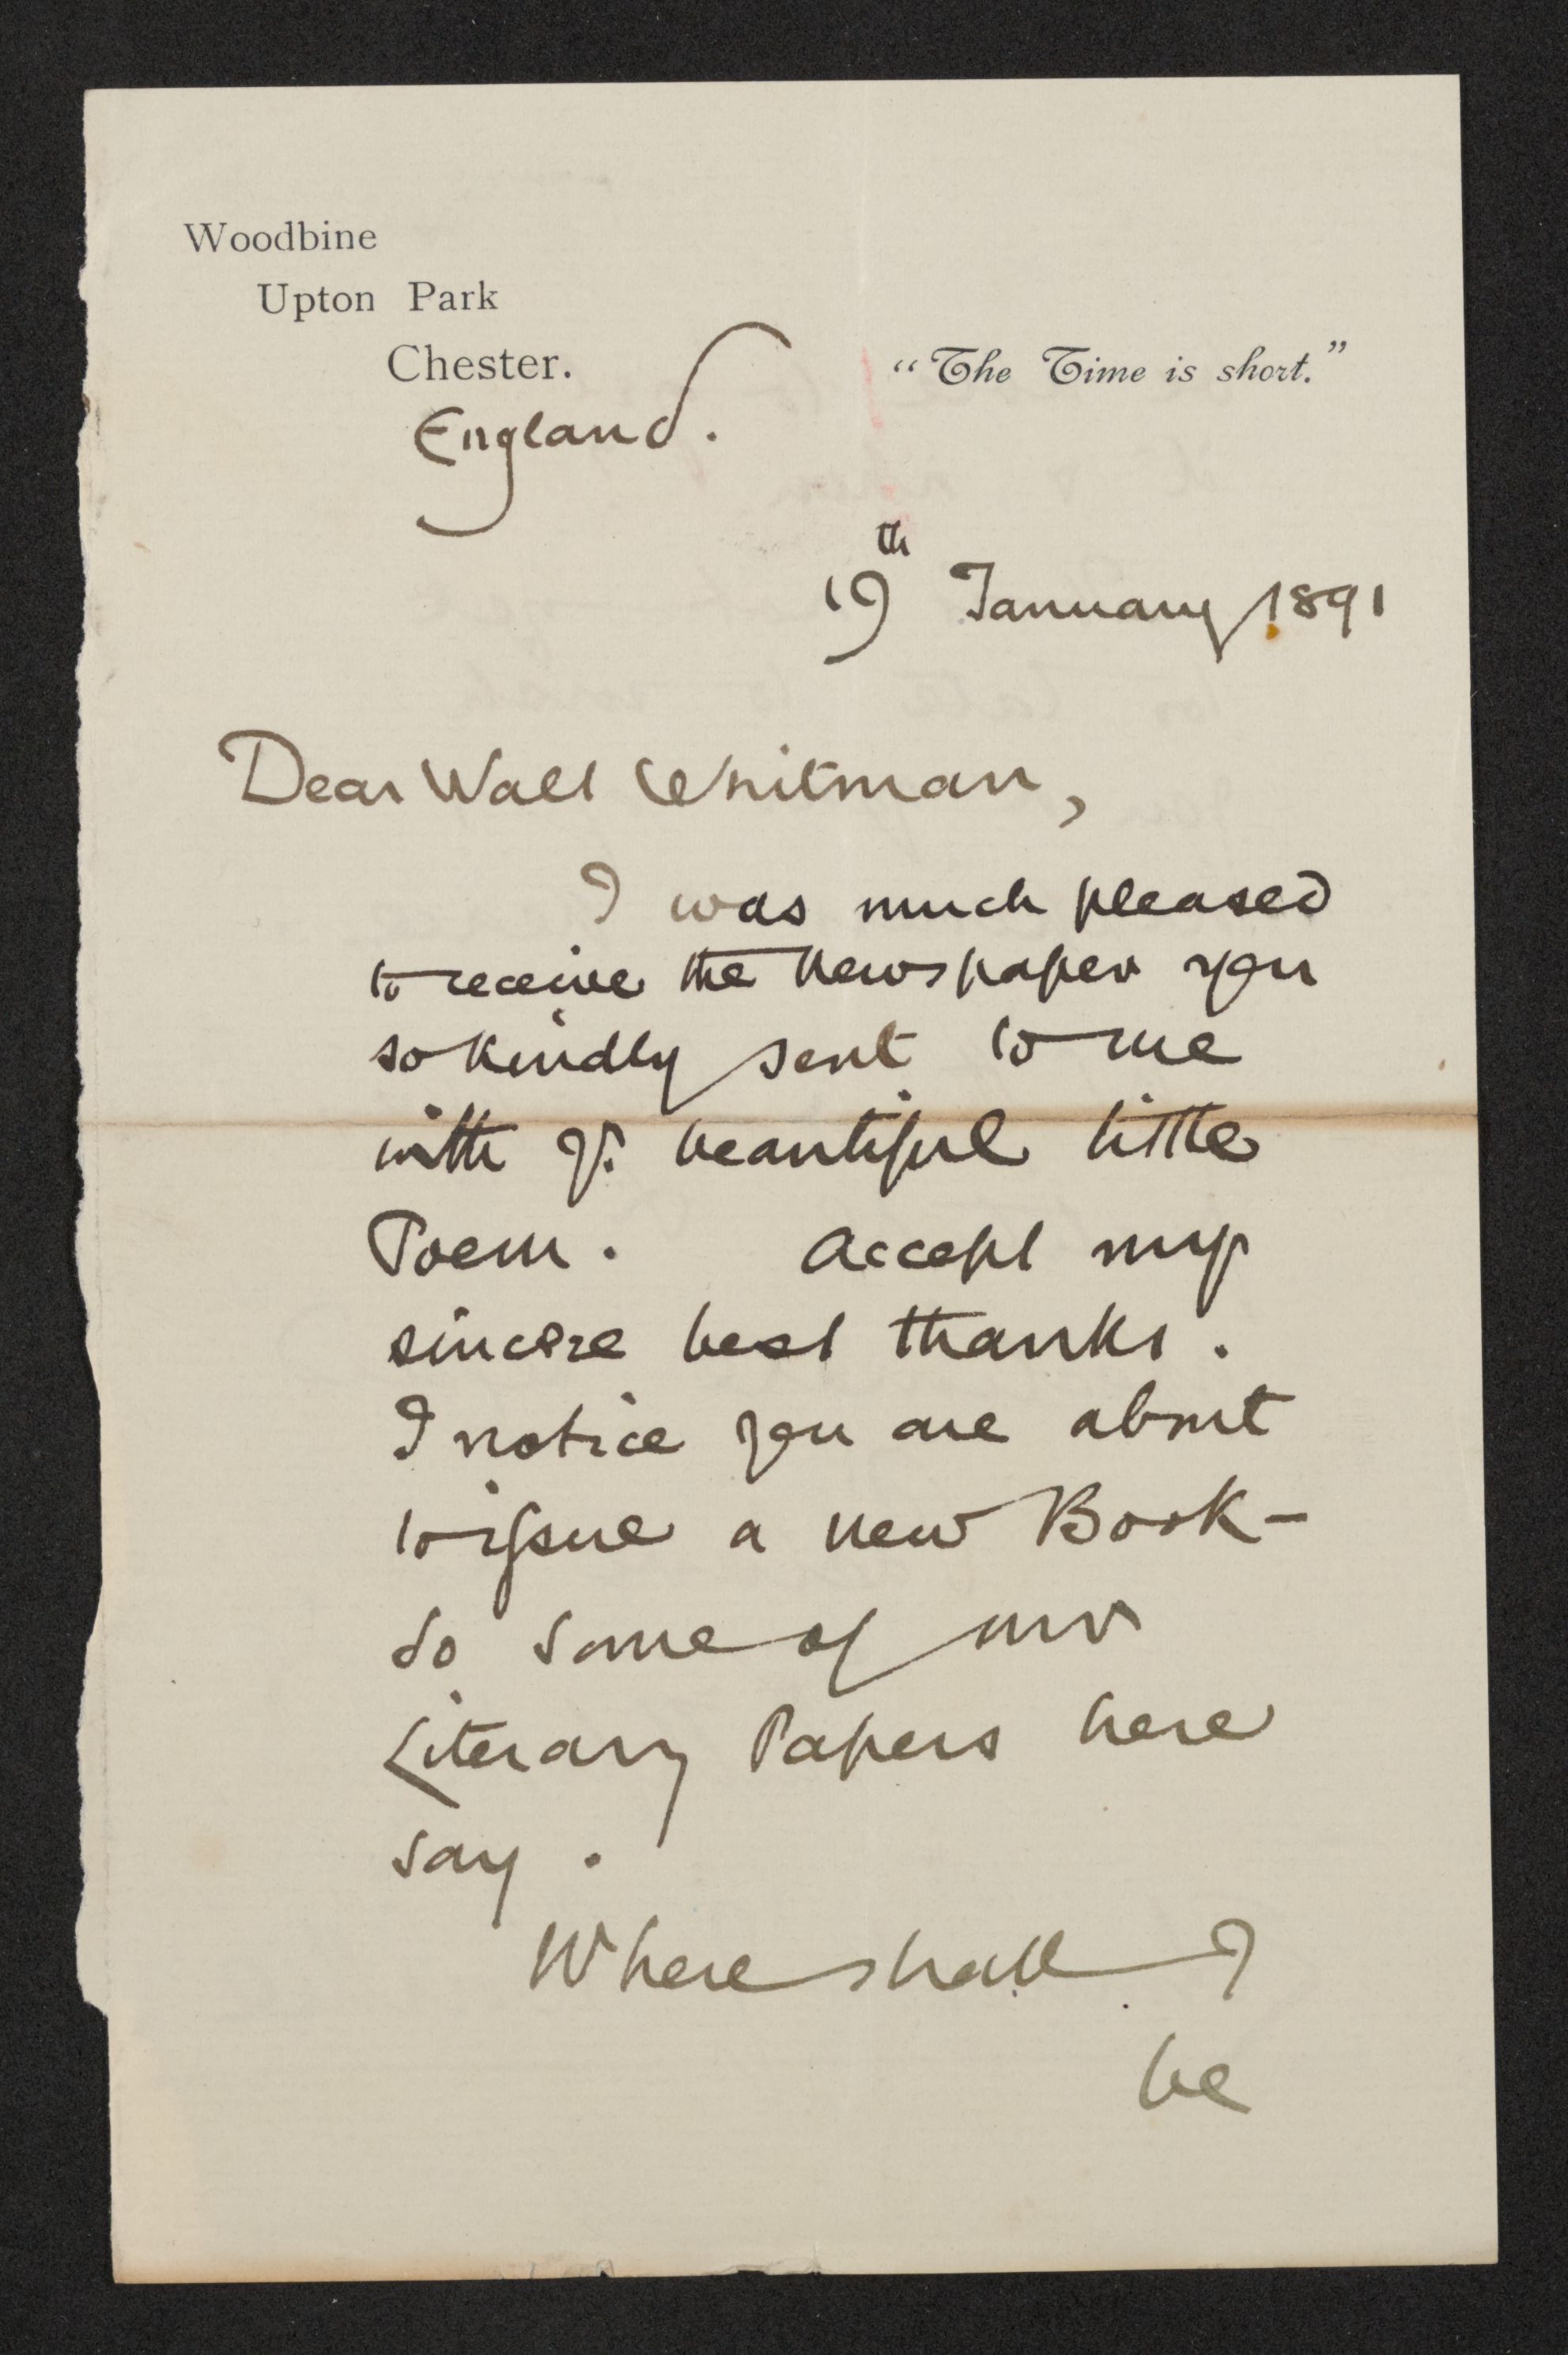 Woodbine
Upton Park
Chester.
England.
"The Time is short."
19th January 1891
Dear Walt Whitman,
I was much pleased
to receive the Newspaper you
so kindly sent to me
with yr. beautiful little
Poem. Accept my
sincere best thanks.
I notice you are about
to issue a new Book-
so some of our
Literary Papers here
say.
Where shall I
be